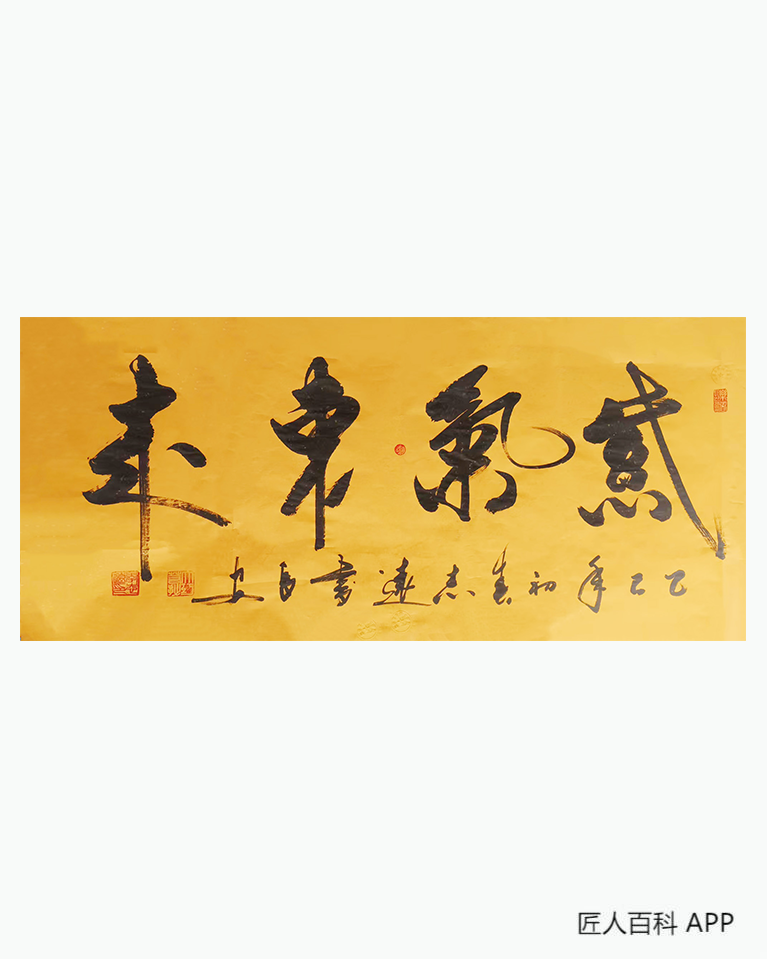 紫氣東來
乙巳年初春志遠書長安
匠人百科 APP